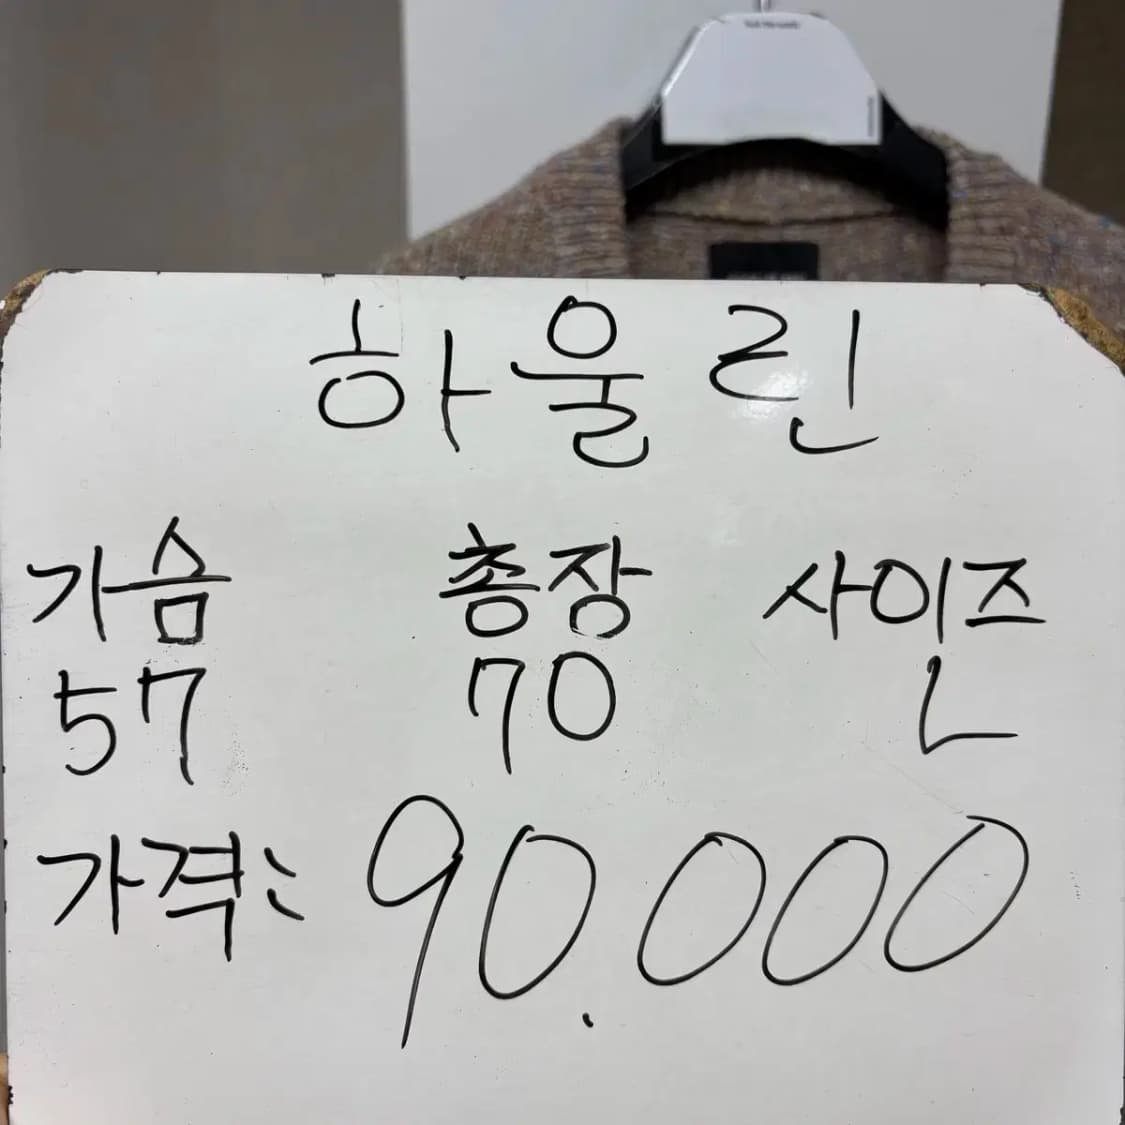 하울린
가슴 총장 사이즈
57 70 L
가격: 90.000